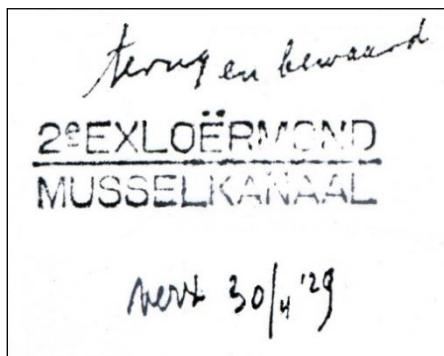 terug en bewaard
2ᵉ EXLOËRMOND
MUSSELKANAAL
30/4 '29